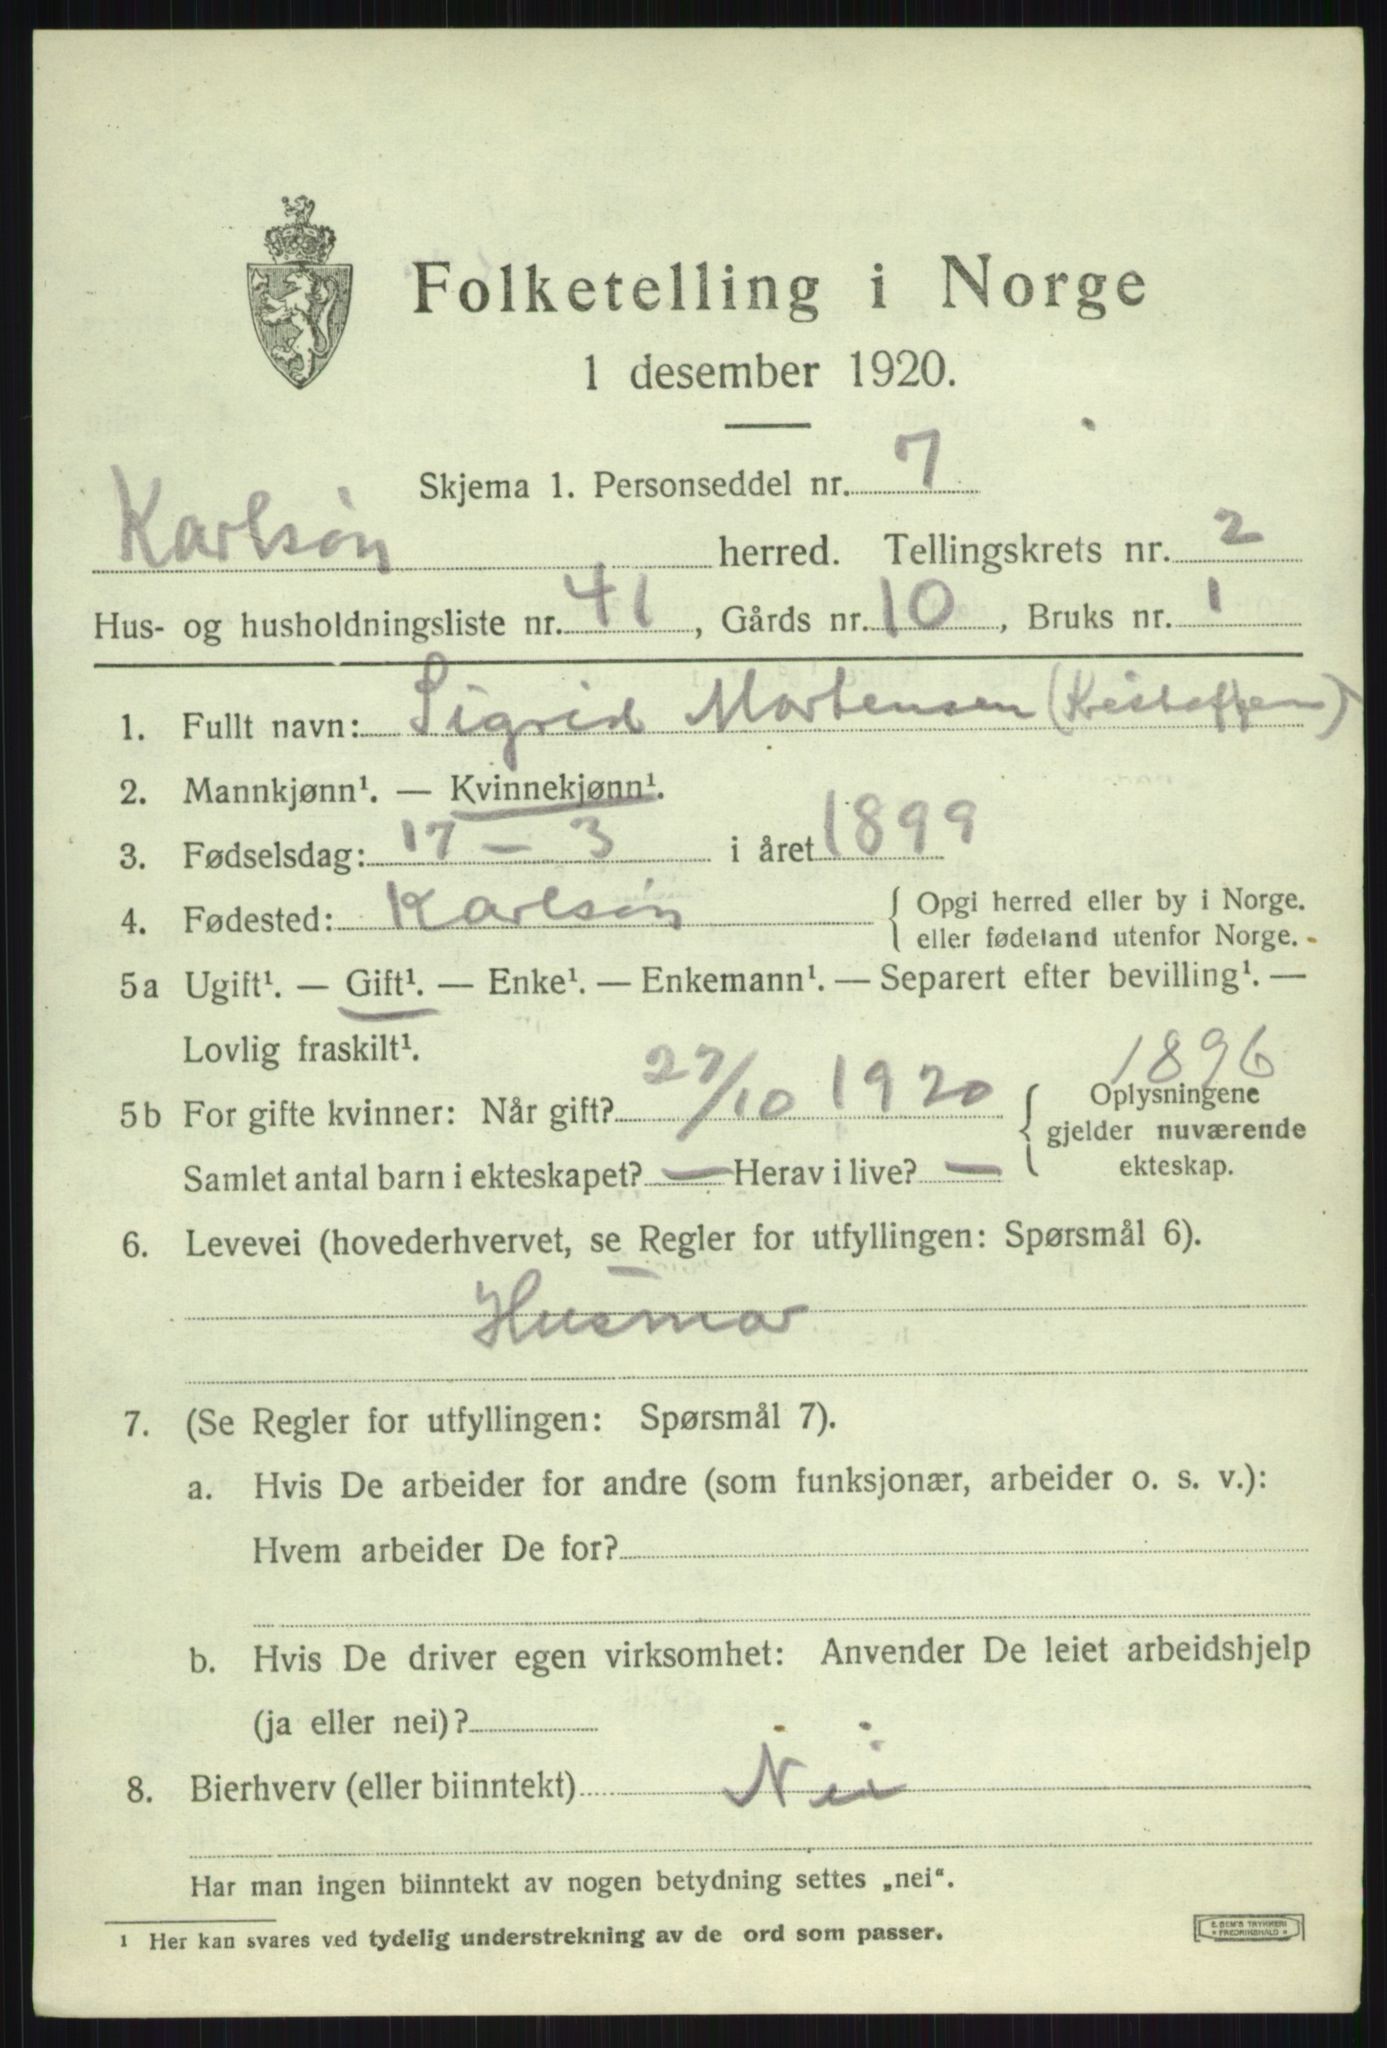 Folketelling i Norge
1 desember 1920.
Skjema 1. Personseddel nr. 7
Karlsøn herred. Tellingskrets nr. 2
Hus- og husholdningsliste nr. 41, Gårds nr. 10, Bruks nr. 1
1. Fullt navn: Sigrid Mortensen
2. Mannkjønn¹. — Kvinnekjønn¹.
3. Fødselsdag: 17 - 3 i året 1899
4. Fødested: Karlsøn { Opgi herred eller by i Norge.
eller fødeland utenfor Norge.
5a Ugift¹. — Gift¹. — Enke¹. — Enkemann¹. — Separert efter bevilling¹. —
Lovlig fraskilt¹.
1896
5b For gifte kvinner: Når gift? 27/10 1920 { Oplysningene
gjelder nuværende
ekteskap.
Samlet antal barn i ekteskapet? — Herav i live? —
6. Levevei (hovederhvervet, se Regler for utfyllingen: Spørsmål 6).
Husmor
7. (Se Regler for utfyllingen: Spørsmål 7).
a. Hvis De arbeider for andre (som funksjonær, arbeider o. s. v.):
Hvem arbeider De for?
b. Hvis De driver egen virksomhet: Anvender De leiet arbeidshjelp
(ja eller nei)?
8. Bierhverv (eller biinntekt) Nei
Har man ingen biinntekt av nogen betydning settes „nei“.
1 Her kan svares ved tydelig understrekning av de ord som passer.
E. SEM'S TRYKKERI
* FREDRIKSHALD *